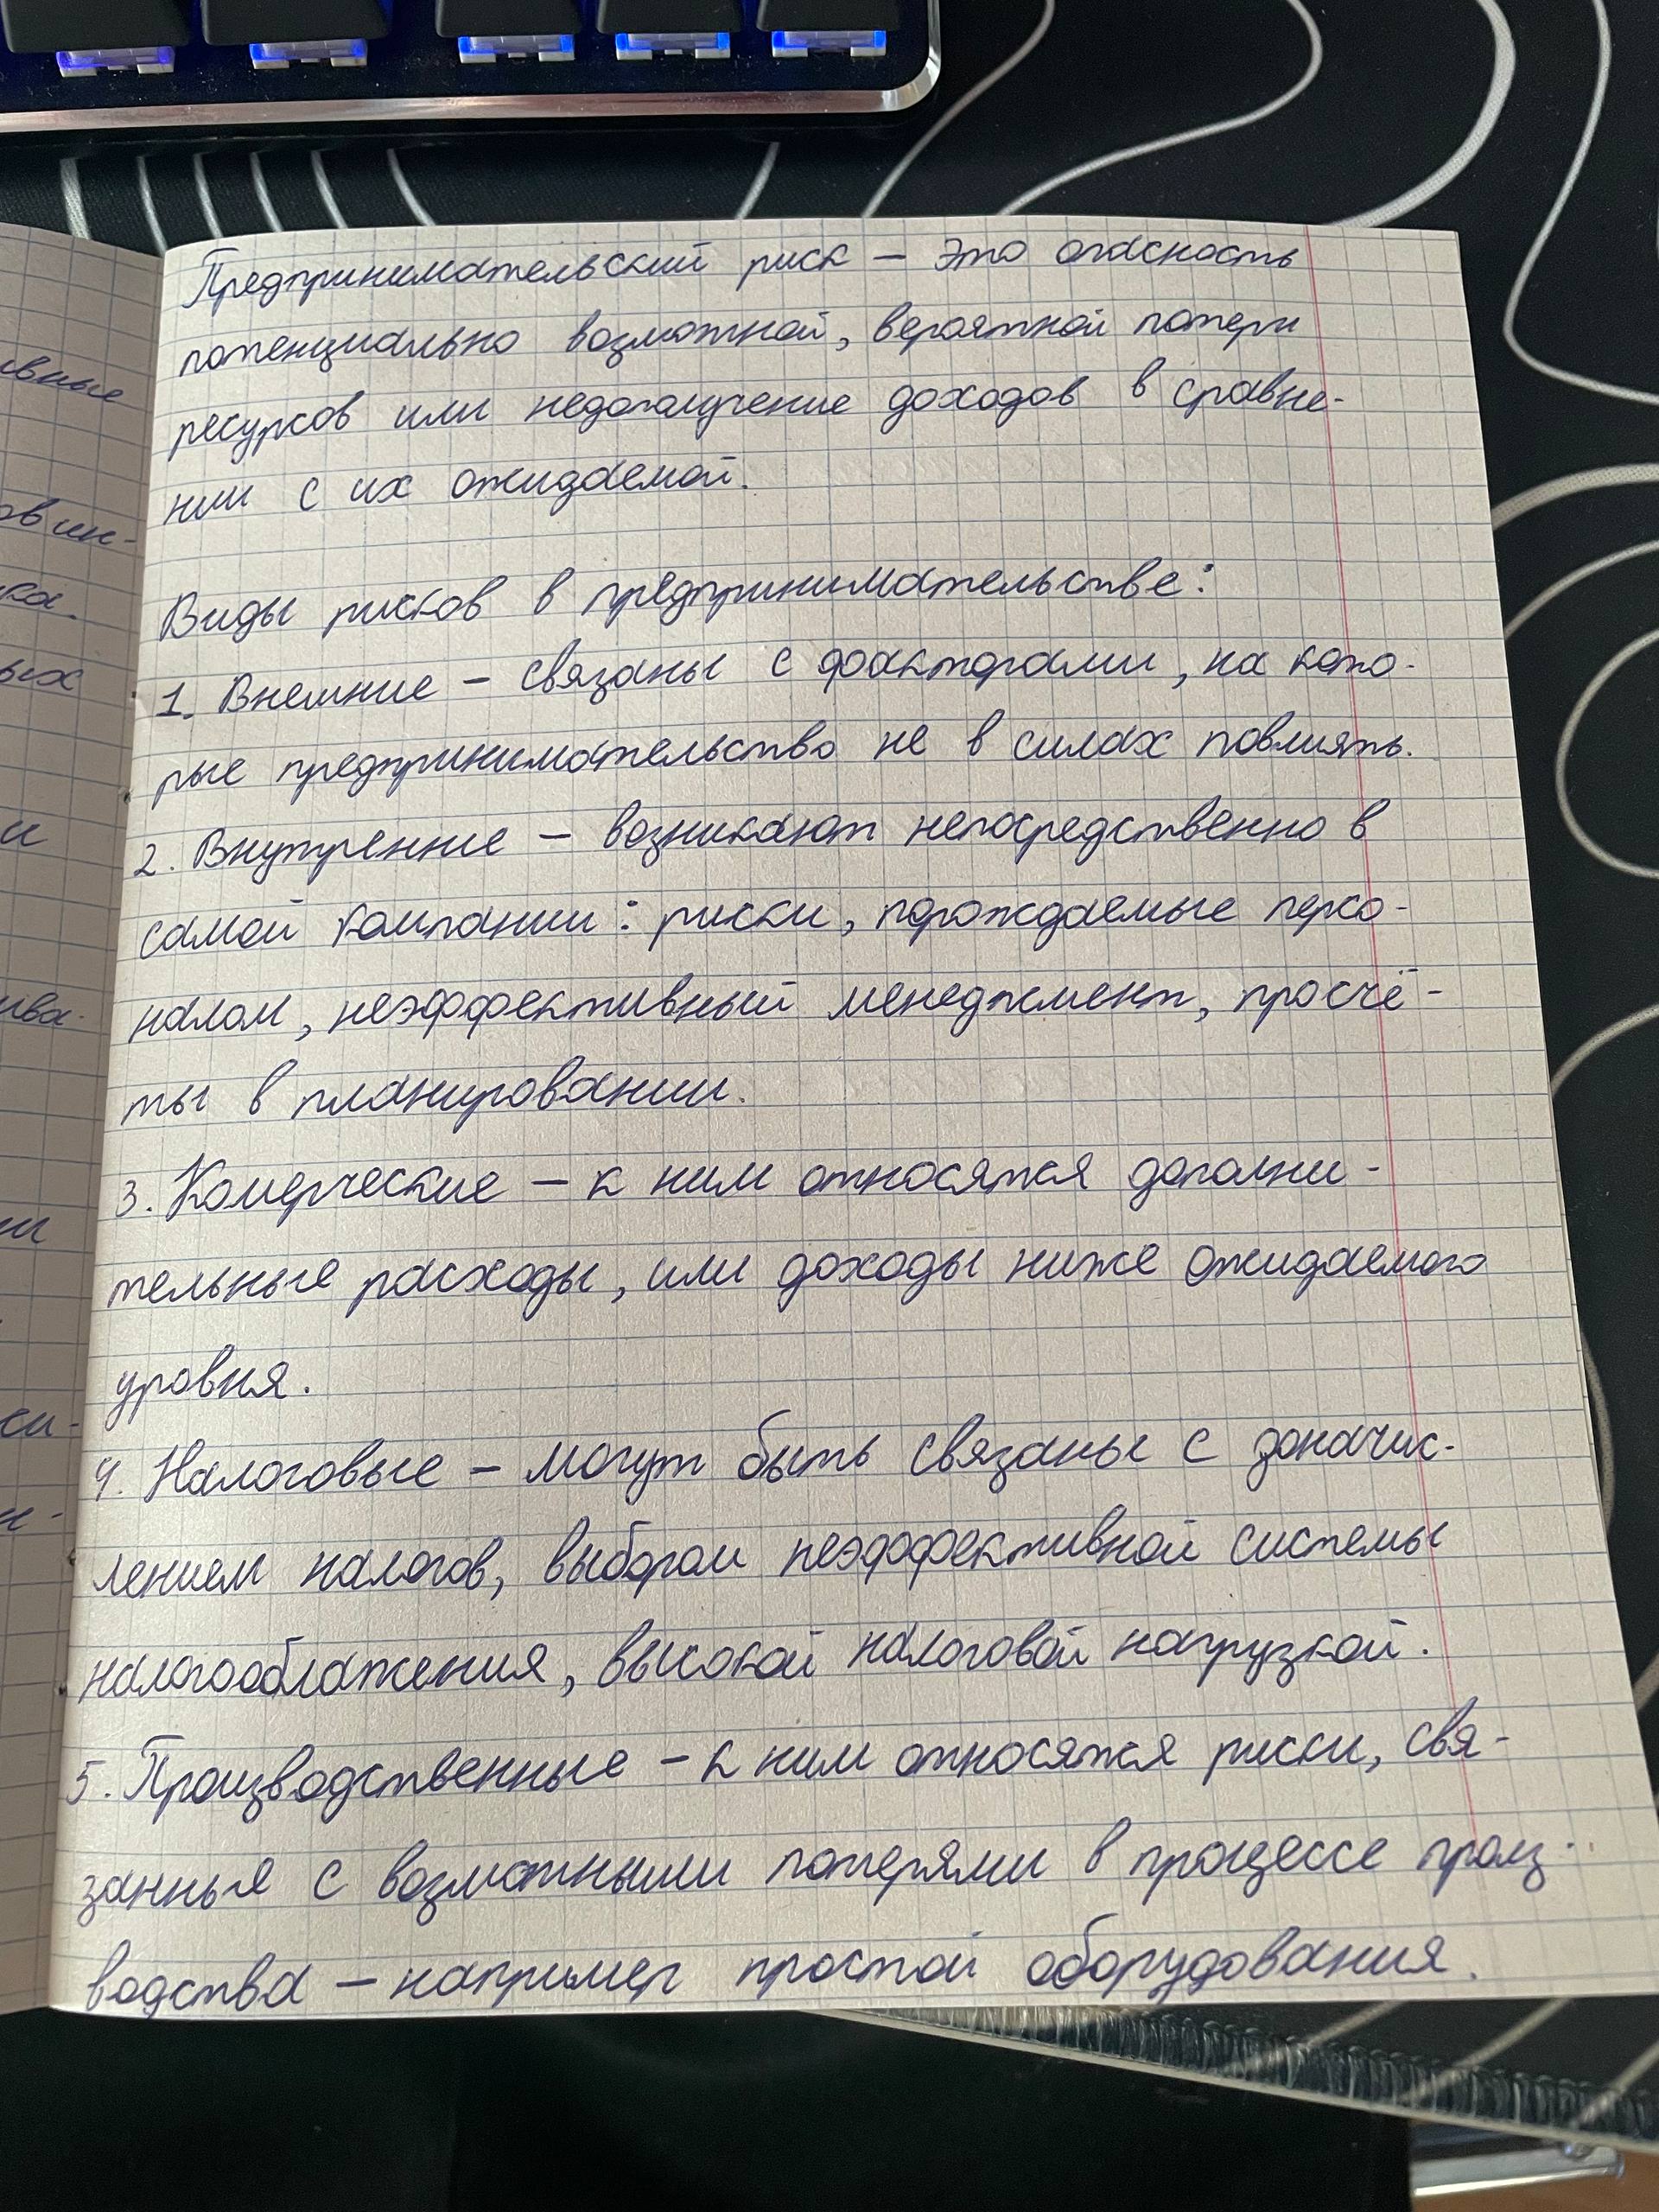 Предпринимательский риск – это опасность
потенциально возможной, вероятной потери
ресурсов или недополучение доходов в сравне-
нии с их ожидаемой.
Виды рисков в предпринимательстве:
1. Внешние – связаны с факторами, на кото-
рые предпринимательство не в силах повлиять.
2. Внутренние – возникают непосредственно в
самой компании: риски, порождаемые персо-
налом, неэффективный менеджмент, просчё-
ты в планировании.
3. Комерческие – к ним относятся дополни-
тельные расходы, или доходы ниже ожидаемого
уровня.
4. Налоговые – могут быть связаны с доначис-
лением налогов, выбором неэффективной системы
налогообложения, высокой налоговой нагрузкой.
5. Производственные – к ним относятся риски, свя-
занные с возможными потерями в процессе произ-
водства – например простой оборудования.
ивные
ка.
ых
и
ива-
ии
си-
н-